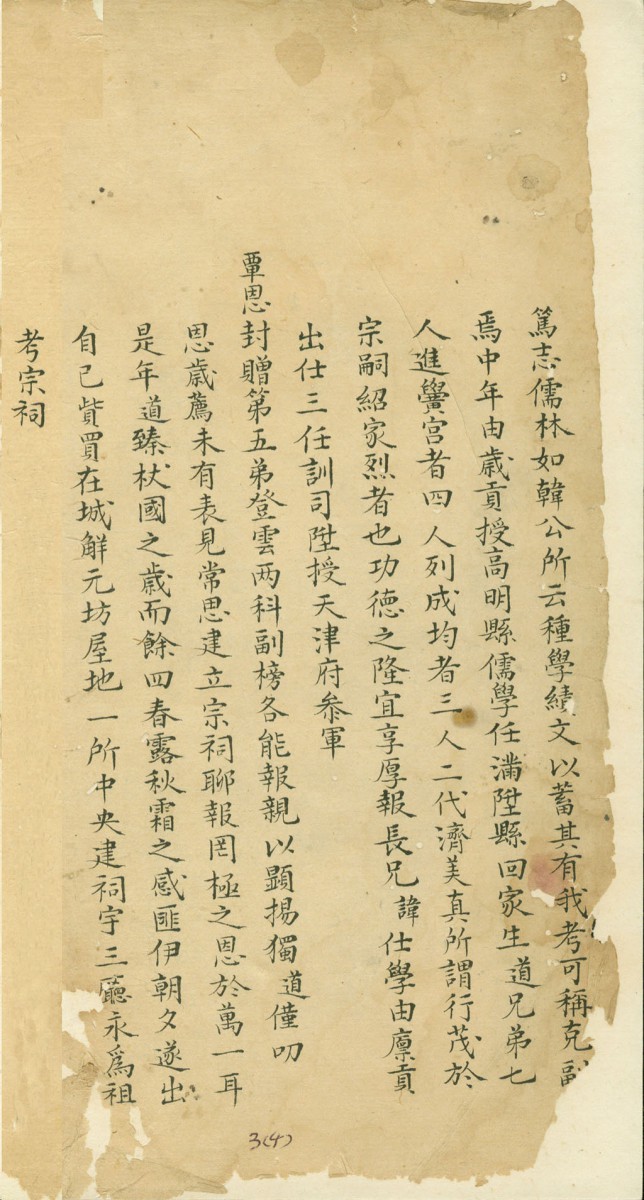 篤志儒林如韓公所云種學績文以蓄其有我考可稱克副
焉中年由歲貢授高明縣儒學任滿陞縣回家生道兄弟七
人進黌宮者四人列成均者三人二代濟美真所謂行茂於
宗嗣紹家烈者也功德之隆宜享厚報長兄諱仕學由廩貢
出仕三任訓司陞授天津府叅軍
覃恩封贈第五弟登雲两科副榜各能報親以顯揚獨道僅叨
恩歲薦未有表見常思建立宗祠聊報罔極之恩於萬一耳
是年道臻杖國之歲而餘四春露秋霜之感匪伊朝夕遂出
自己貲買在城觧元坊屋地一所中央建祠宇三廳永爲祖
考宗祠
3(4)